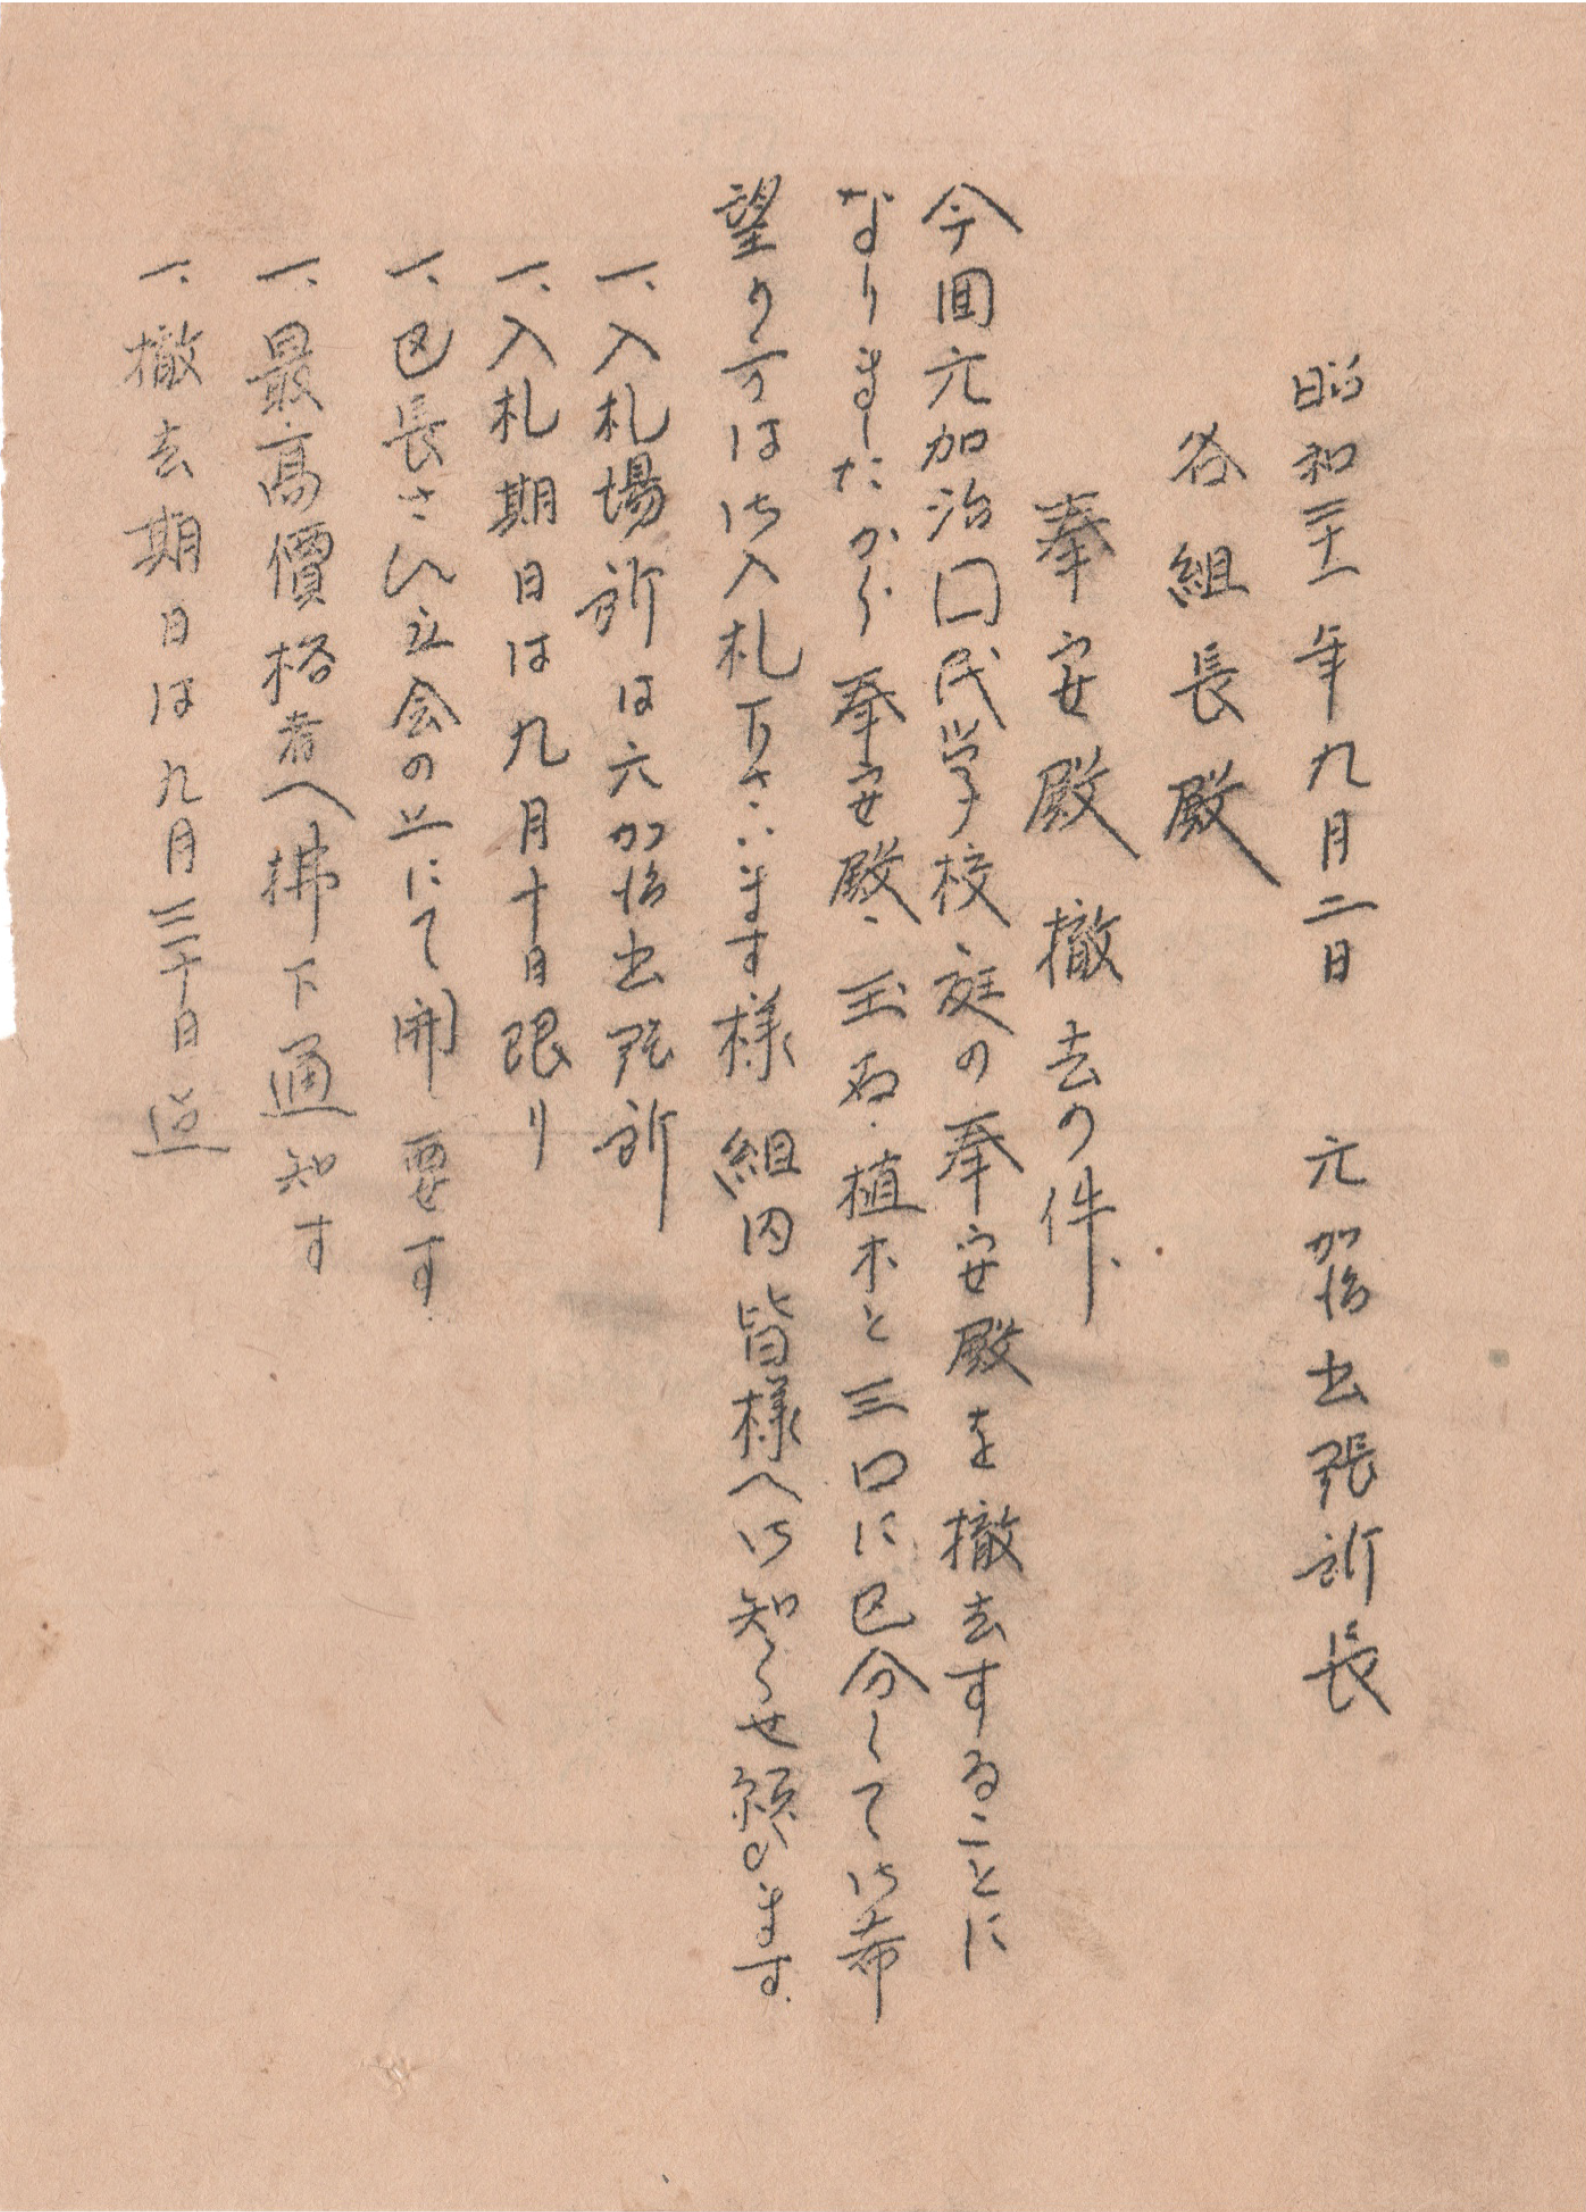 昭和二十一年九月二日　元加治出張所長
各組長殿
奉安殿撤去の件、
今回元加治国民学校庭の奉安殿を撤去することに
なりましたから奉安殿、玉石・植木と三口に区分して御希
望の方は御入札下さいます様組内皆様へ御知らせ願います.
一、入札場所は元加治出張所
一、入札期日は九月十日限り
一、区長さん立会の上にて開票す.
一、最高價格者へ拂下通知す
一、撤去期日は九月三十日迄